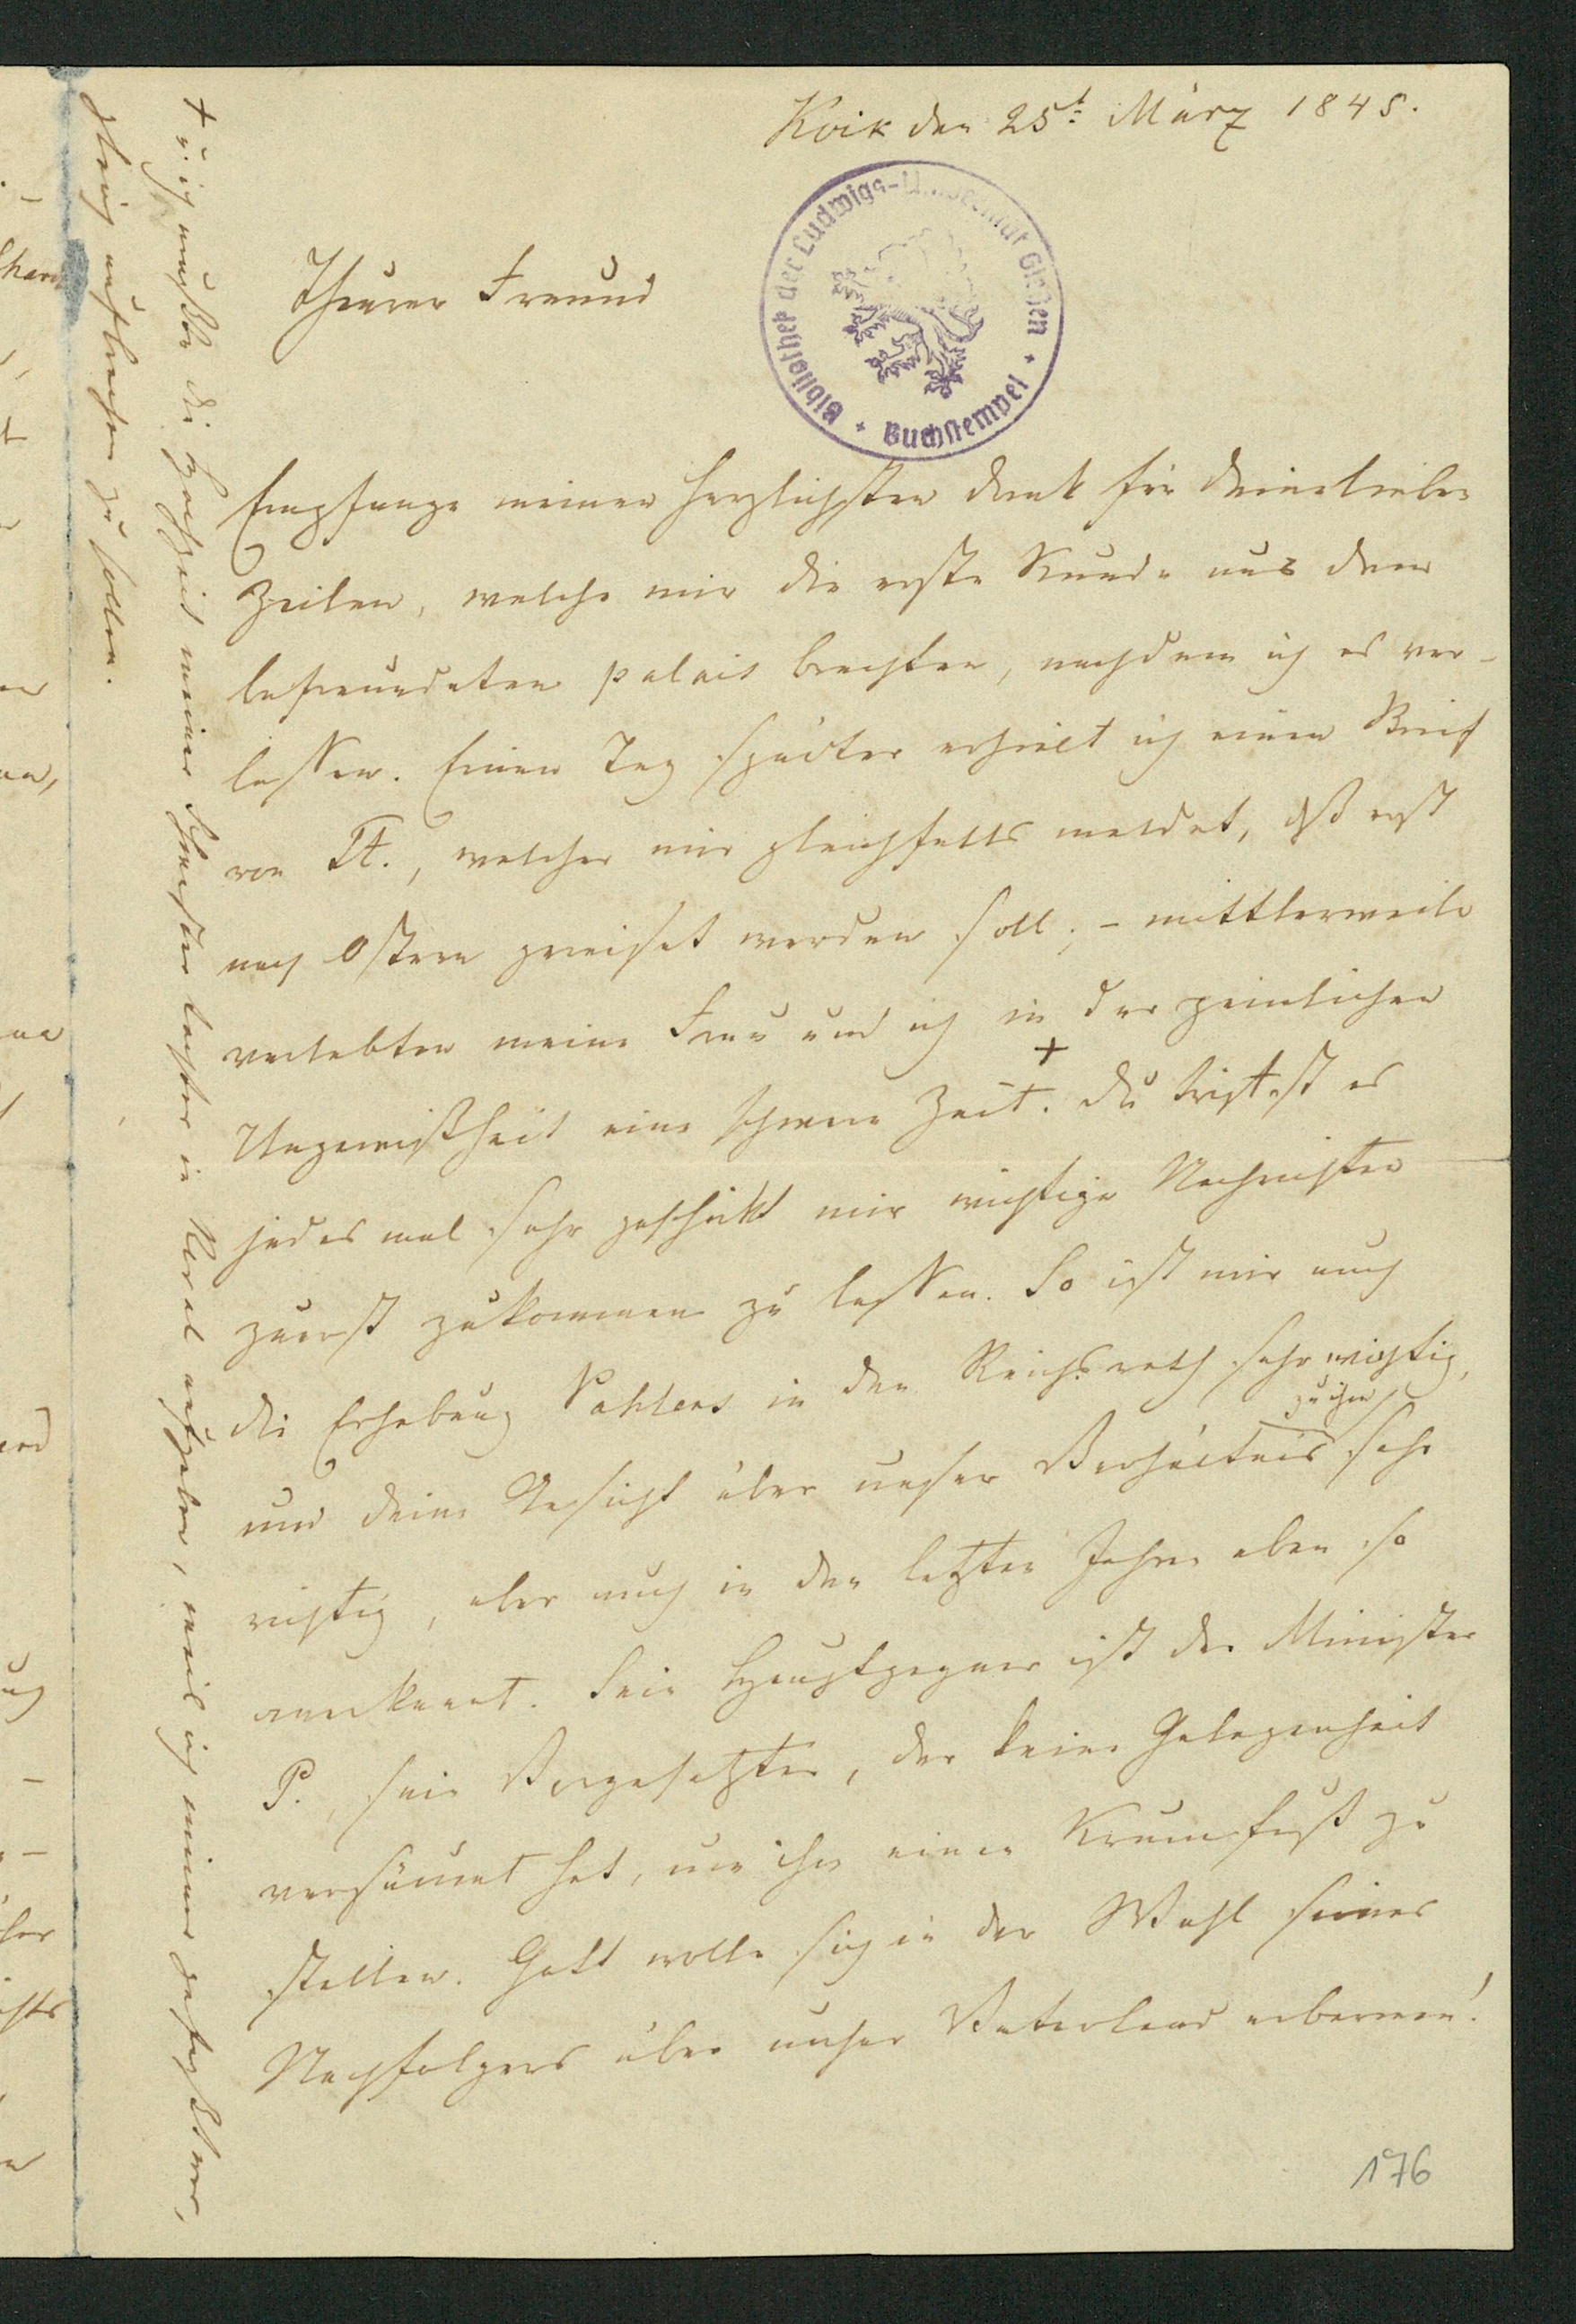 Koik den 25t März 1845.
Theurer Freund
Empfange meinen herzlichsten Dank für deine lieben
Zeilen, welche mir die erste Kunde aus dem
befreundeten palais brachten, nachdem ich es ver-
lassen. Einen Tag später erhielt ich einen Brief
von Tt., welcher mir gleichfalls meldet, daß erst
nach Ostern gereiset werden soll; – mittlerweile
verlebten meine Frau und ich in der peinlichen
Ungewißheit eine schwere Zeit. + Du triffst es
jedes mal sehr geschickt mir wichtige Nachrichten
zuerst zukommen zu lassen. So ist mir auch
die Erhebung Pahlens in den Reichsrath sehr wichtig,
und deine Ansicht über unser Verhältnis zu ihm sehr
richtig, aber auch in den letzten Jahren eben so
anerkannt. Sein Hauptgegner ist der Minister
P., sein Vorgesetzter, der keine Gelegenheit
versäumt hat, um ihm einen Krummfuß zu
stellen. Gott wolle sich in der Wahl seines
Nachfolgers über unser Vaterland erbarmen!
+ u. ich mußte die Hochzeit meiner Schwester in aufgeben, weil ich immer gefaßt war,
gleich aufbrechen zu sollen.
Bibliothek der Ludwigs-Universität Gießen + Buchstempel +
176